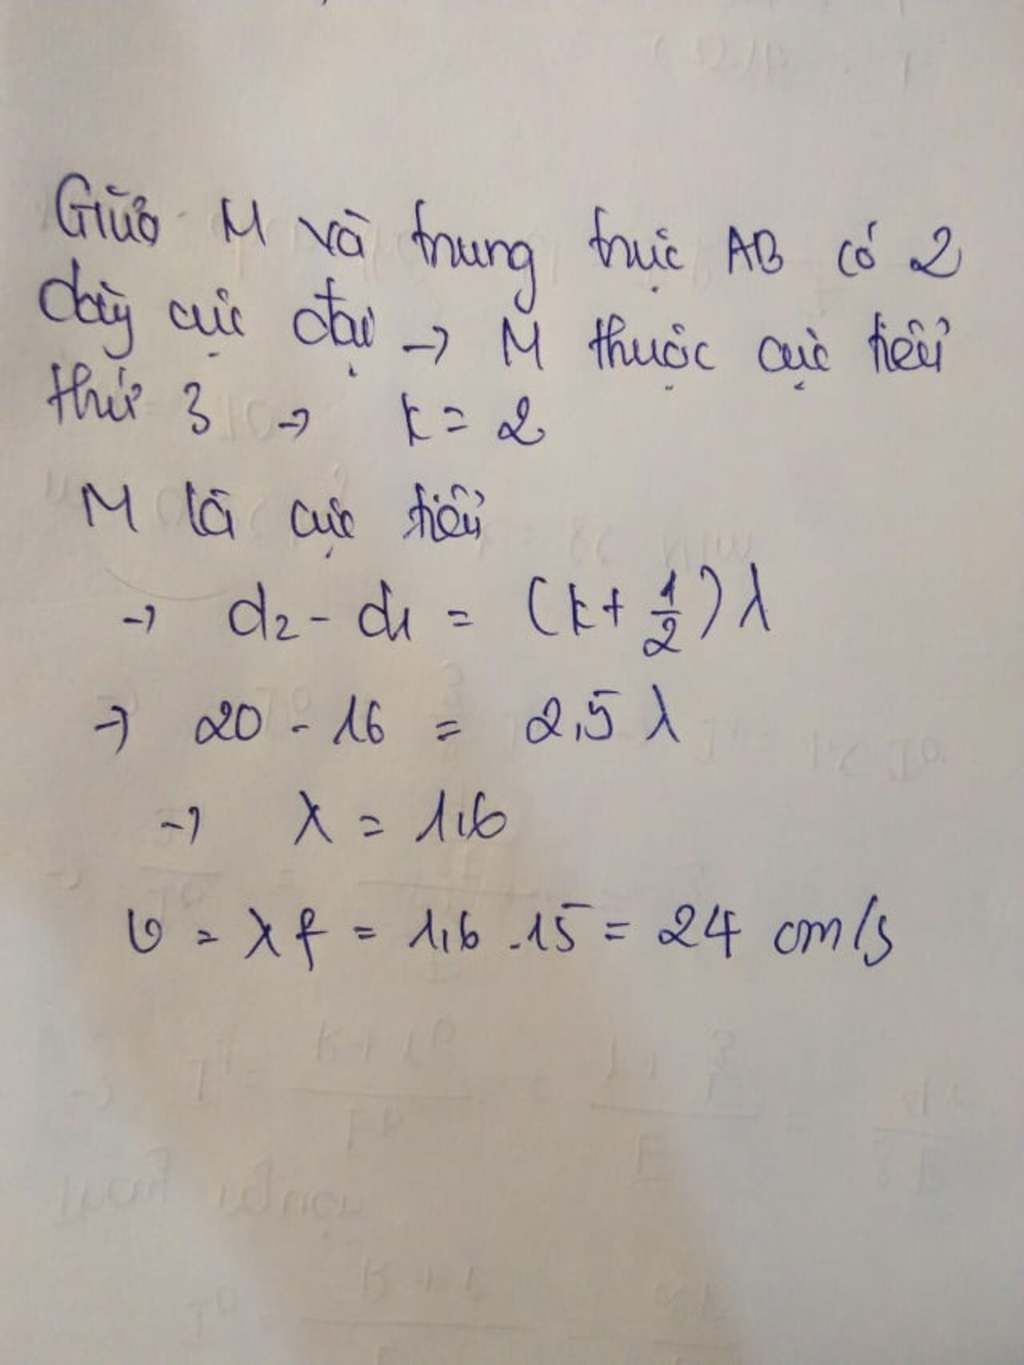 Giữa M và trung trực AB có 2
dãy cực đại → M thuộc cực tiểu
thứ 3 → k = 2
M là cực tiểu
→ d₂ - d₁ = (k + 1/2) λ
→ 20 - 16 = 2,5 λ
→ λ = 1,6
v = λf = 1,6 . 15 = 24 cm/s